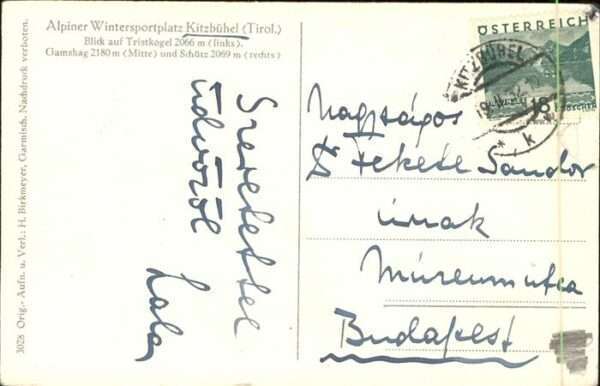 Alpiner Wintersportplatz Kitzbühel (Tirol.)
Blick auf Tristkogel 2066 m (links).
Gamshag 2180 m (Mitte) und Schütz 2069 m (rechts)
3028 Orig.- Aufn. u. Verl.: H. Birkmeyer, Garmisch. Nachdruck verboten.
Szeretettel
üdvözöl
Lala
ÖSTERREICH
18
GROSCHEN
KITZBÜHEL
* k
Nagyságos
Dr Fekete Sándor
úrnak
Múzeum utca
Budapest